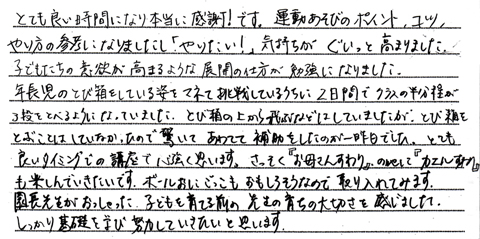 とても良い時間になり本当に感謝!です。運動あそびのポイント、コツ、
やり方の参考になりましたし「やりたい!」気持ちが ぐいっと高まりました。
子どもたちの意欲が高まるような展開の仕方が勉強になりました。
年長児のとび箱をしている姿をまねて挑戦しているうちに2日間でクラスの半分程が
3段をとべるようになっていました。とび箱の上から飛ぶなどはしていましたが、とび箱を
とぶことはしていなかったので驚いてあわてて補助をしたのが一昨日でした。とても
良いタイミングでの講座で心強く思います。さっそく『お母さんすわり』、のばして『カエルの』
も楽しんでいきたいです。ボールおにごっこもおもしろそうなので取り入れてみます。
園長先生がおっしゃった 子どもを育てる前の先生の育ちの大切さを感じました。
しっかり基礎を学び努力していきたいと思います。